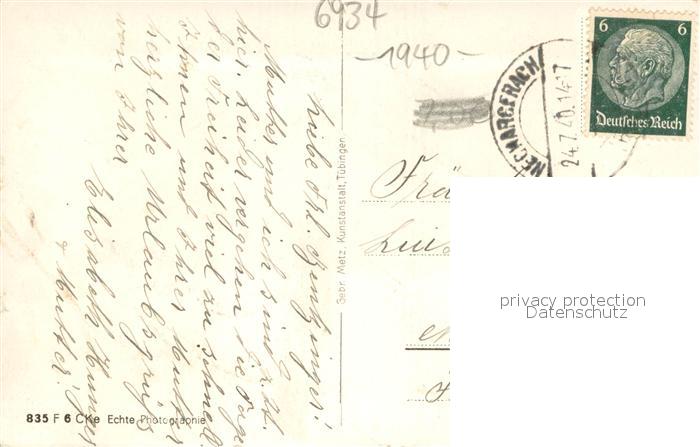 6934
-1940-
6 6
Deutsches Reich
NECKARGERACH
24.7.40.14-17
Liebe Frl. Gentzinger!
Mutter und ich sind z. Zt.
hier. Leider vergehen die Tage
der Freiheit viel zu schnell.
Ihnen und Ihrer Mutter
herzliche Urlaubsgrüße
von Ihrer
Elisabeth
& Mutter!
Gebr. Metz, Kunstanstalt, Tübingen
Frä
Lui
privacy protection
Datenschutz
835 F 6 CKe Echte Photographie